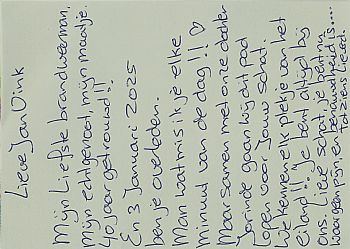 Lieve Jan Vink
Mijn Liefste brandweerman.
Mijn echtgenoot, mijn maatje.
40 jaar getrouwd!!
En 3 Januari 2025
ben je overleden.
Man wat mis ik je elke
minuut van de dag!! ♡
Maar samen met onze dochter
Jorinde gaan wij dit pad
lopen voor jouw schat.
We kennen elk plekje van het
Eiland!! Je bent altijd bij
ons. Lieve schat, je bent nu
waar geen pijn, en benauwdheid is....
Tot ziens Liefed.